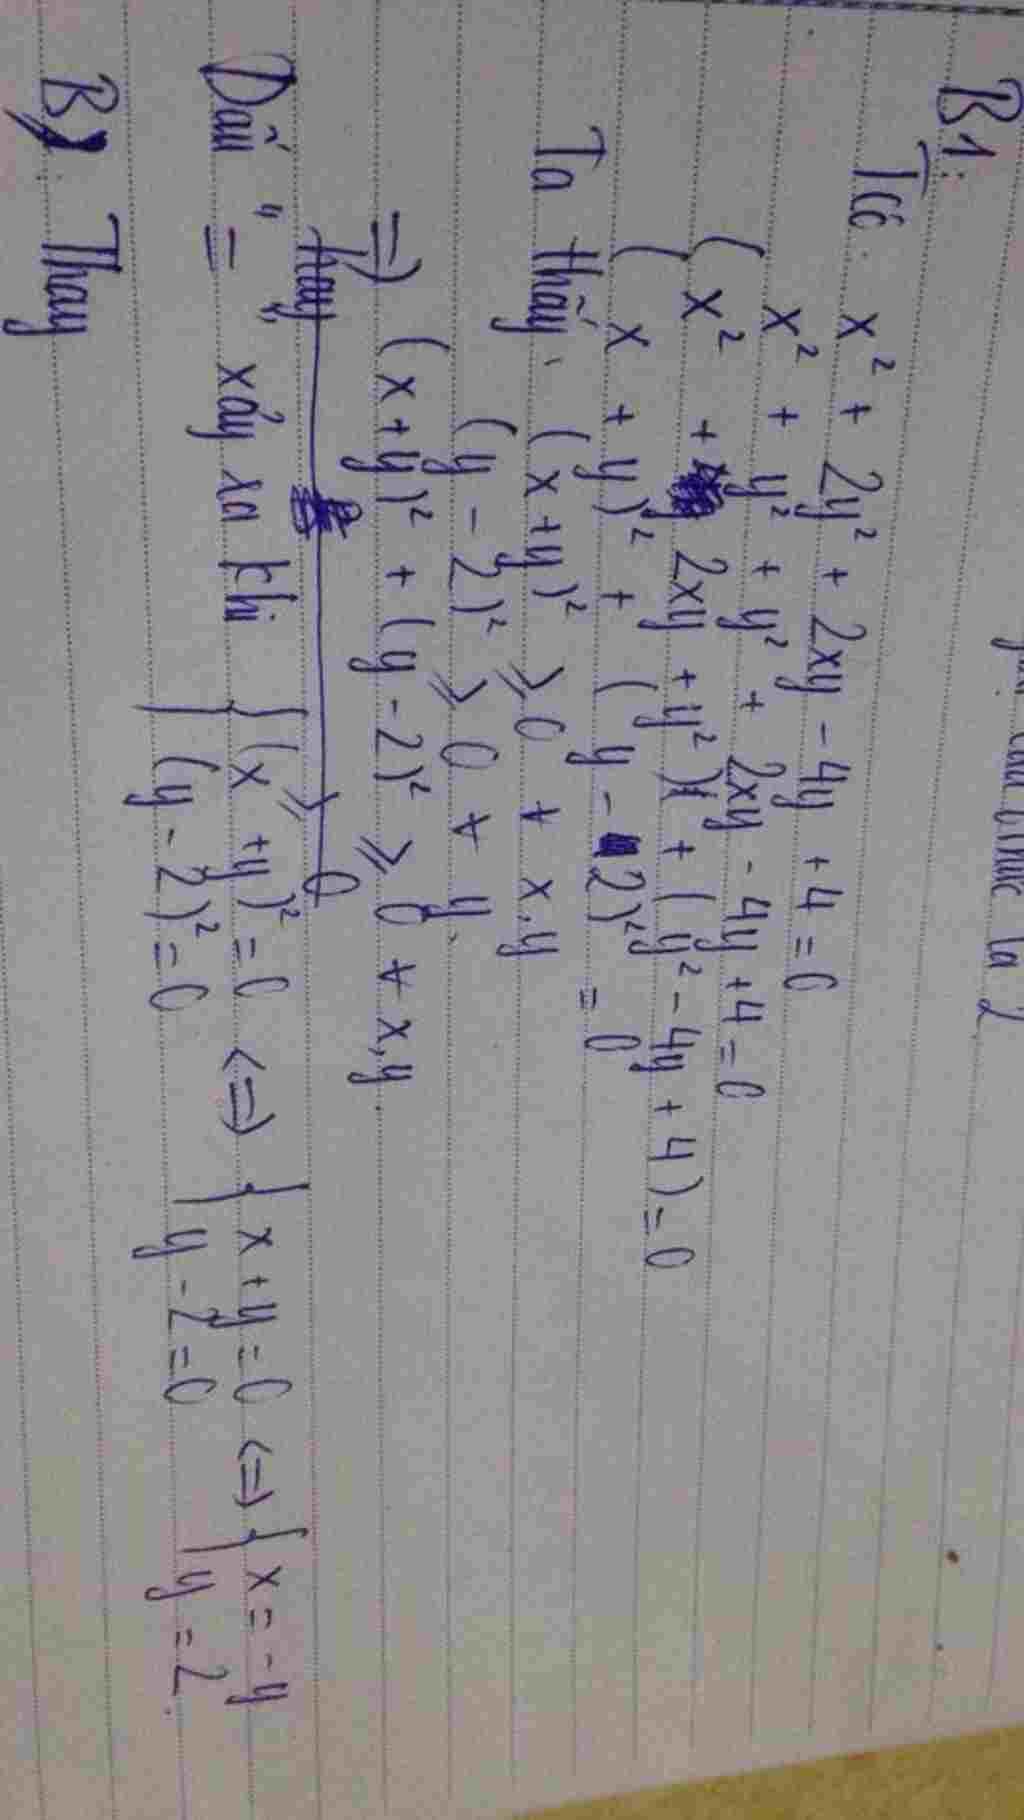 thức là 2
B1:
Tcó: x² + 2y² + 2xy - 4y + 4 = 0
x² + y² + y² + 2xy - 4y + 4 = 0
(x² + 2xy + y²) + (y² - 4y + 4) = 0
(x + y)² + (y - 2)² = 0
Ta thấy: (x + y)² ≥ 0 ∀ x, y
(y - 2)² ≥ 0 ∀ y.
=> (x + y)² + (y - 2)² ≥ 0 ∀ x, y.
hay ≥ 0
Dấu "=" xảy ra khi { (x + y)² = 0 <=> { x + y = 0 <=> { x = -y
{ (y - 2)² = 0 { y - 2 = 0 { y = 2.
B: Thay